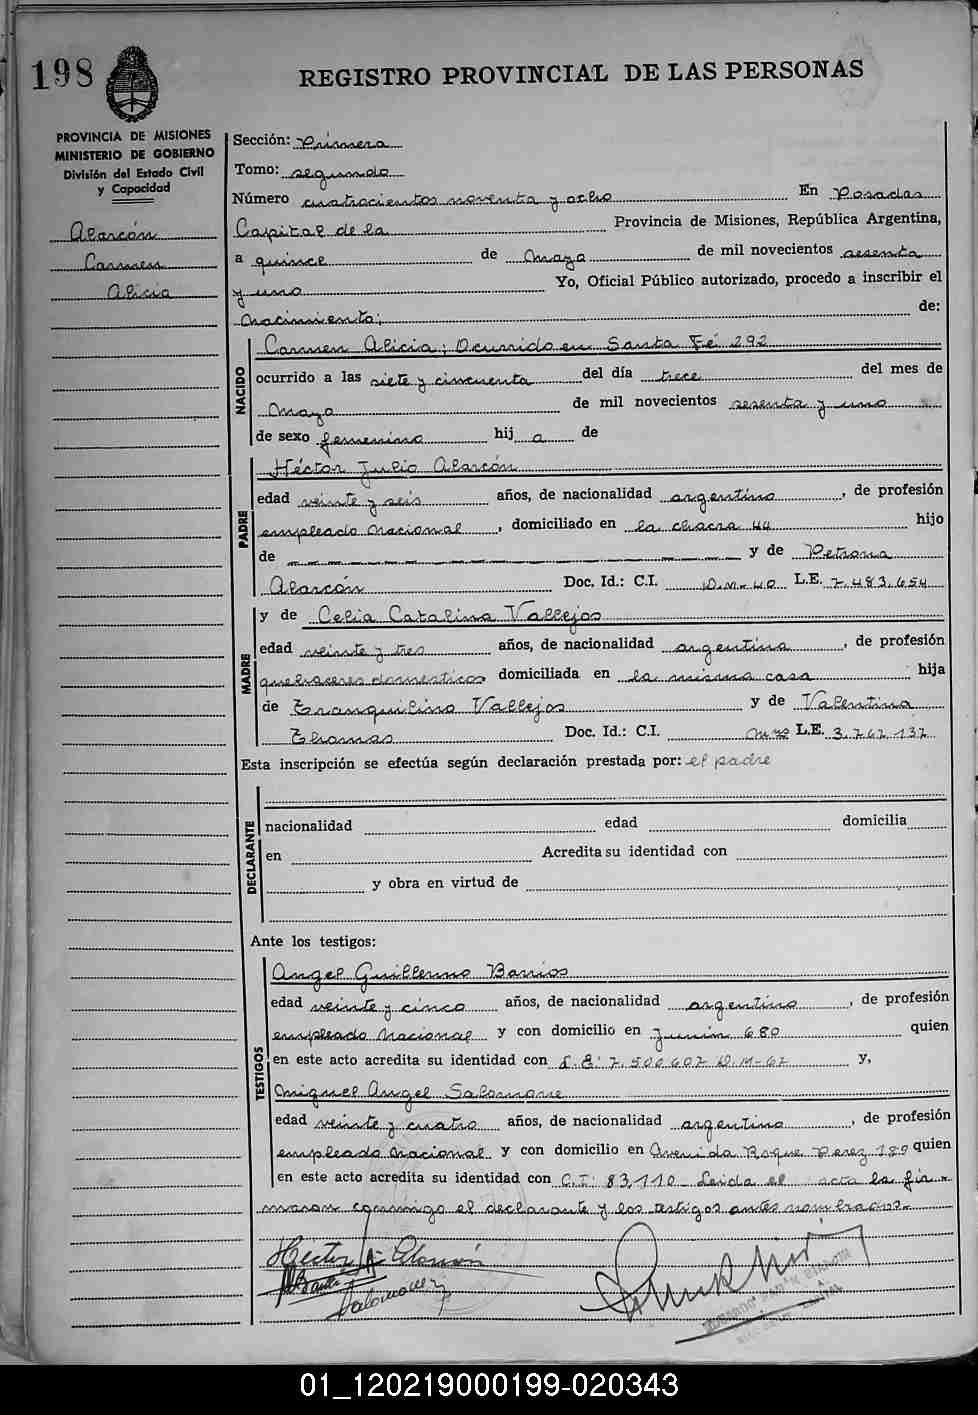 198
REGISTRO PROVINCIAL DE LAS PERSONAS
PROVINCIA DE MISIONES
MINISTERIO DE GOBIERNO
División del Estado Civil
y Capacidad
Alarcón
Carmen
Alicia
Sección: Primera
Tomo: segundo
Número cuatrocientos noventa y ocho En Posadas
Capital de la Provincia de Misiones, República Argentina,
a quince de Mayo de mil novecientos sesenta
y uno Yo, Oficial Público autorizado, procedo a inscribir el
Nacimiento; de:
NACIDO
Carmen Alicia; Ocurrido en Santa Fé 292
ocurrido a las siete y cincuenta del día trece del mes de
Mayo de mil novecientos sesenta y uno
de sexo femenino hij a de
PADRE
Héctor Julio Alarcón
edad veinte y seis años, de nacionalidad argentino, de profesión
empleado nacional, domiciliado en la chacra 44 hijo
de y de Petrona
Alarcón Doc. Id.: C.I. D.M-40 L.E. 7.483.654
y de Celia Catalina Vallejos
MADRE
edad veinte y tres años, de nacionalidad argentina, de profesión
quehaceres domesticos domiciliada en la misma casa hija
de Tranquilino Vallejos y de Valentina
Thomas Doc. Id.: C.I. L.E. 3.767.137
Esta inscripción se efectúa según declaración prestada por: el padre
DECLARANTE
nacionalidad edad domicilia
en Acredita su identidad con
y obra en virtud de
Ante los testigos:
TESTIGOS
Angel Guillermo Barrios
edad veinte y cinco años, de nacionalidad argentino, de profesión
empleado Nacional y con domicilio en Junín 680 quien
en este acto acredita su identidad con L.E: 7.500.607 D.M-67 y,
Miguel Angel Salomone
edad veinte y cuatro años, de nacionalidad argentino, de profesión
empleado Nacional y con domicilio en Avenida Roque Perez 189 quien
en este acto acredita su identidad con C.I: 83.110 - Leida el acta la fir-
maron conmigo el declarante y los testigos antes nombrados.-
Héctor J. Alarcón
Salomone
01_120219000199-020343